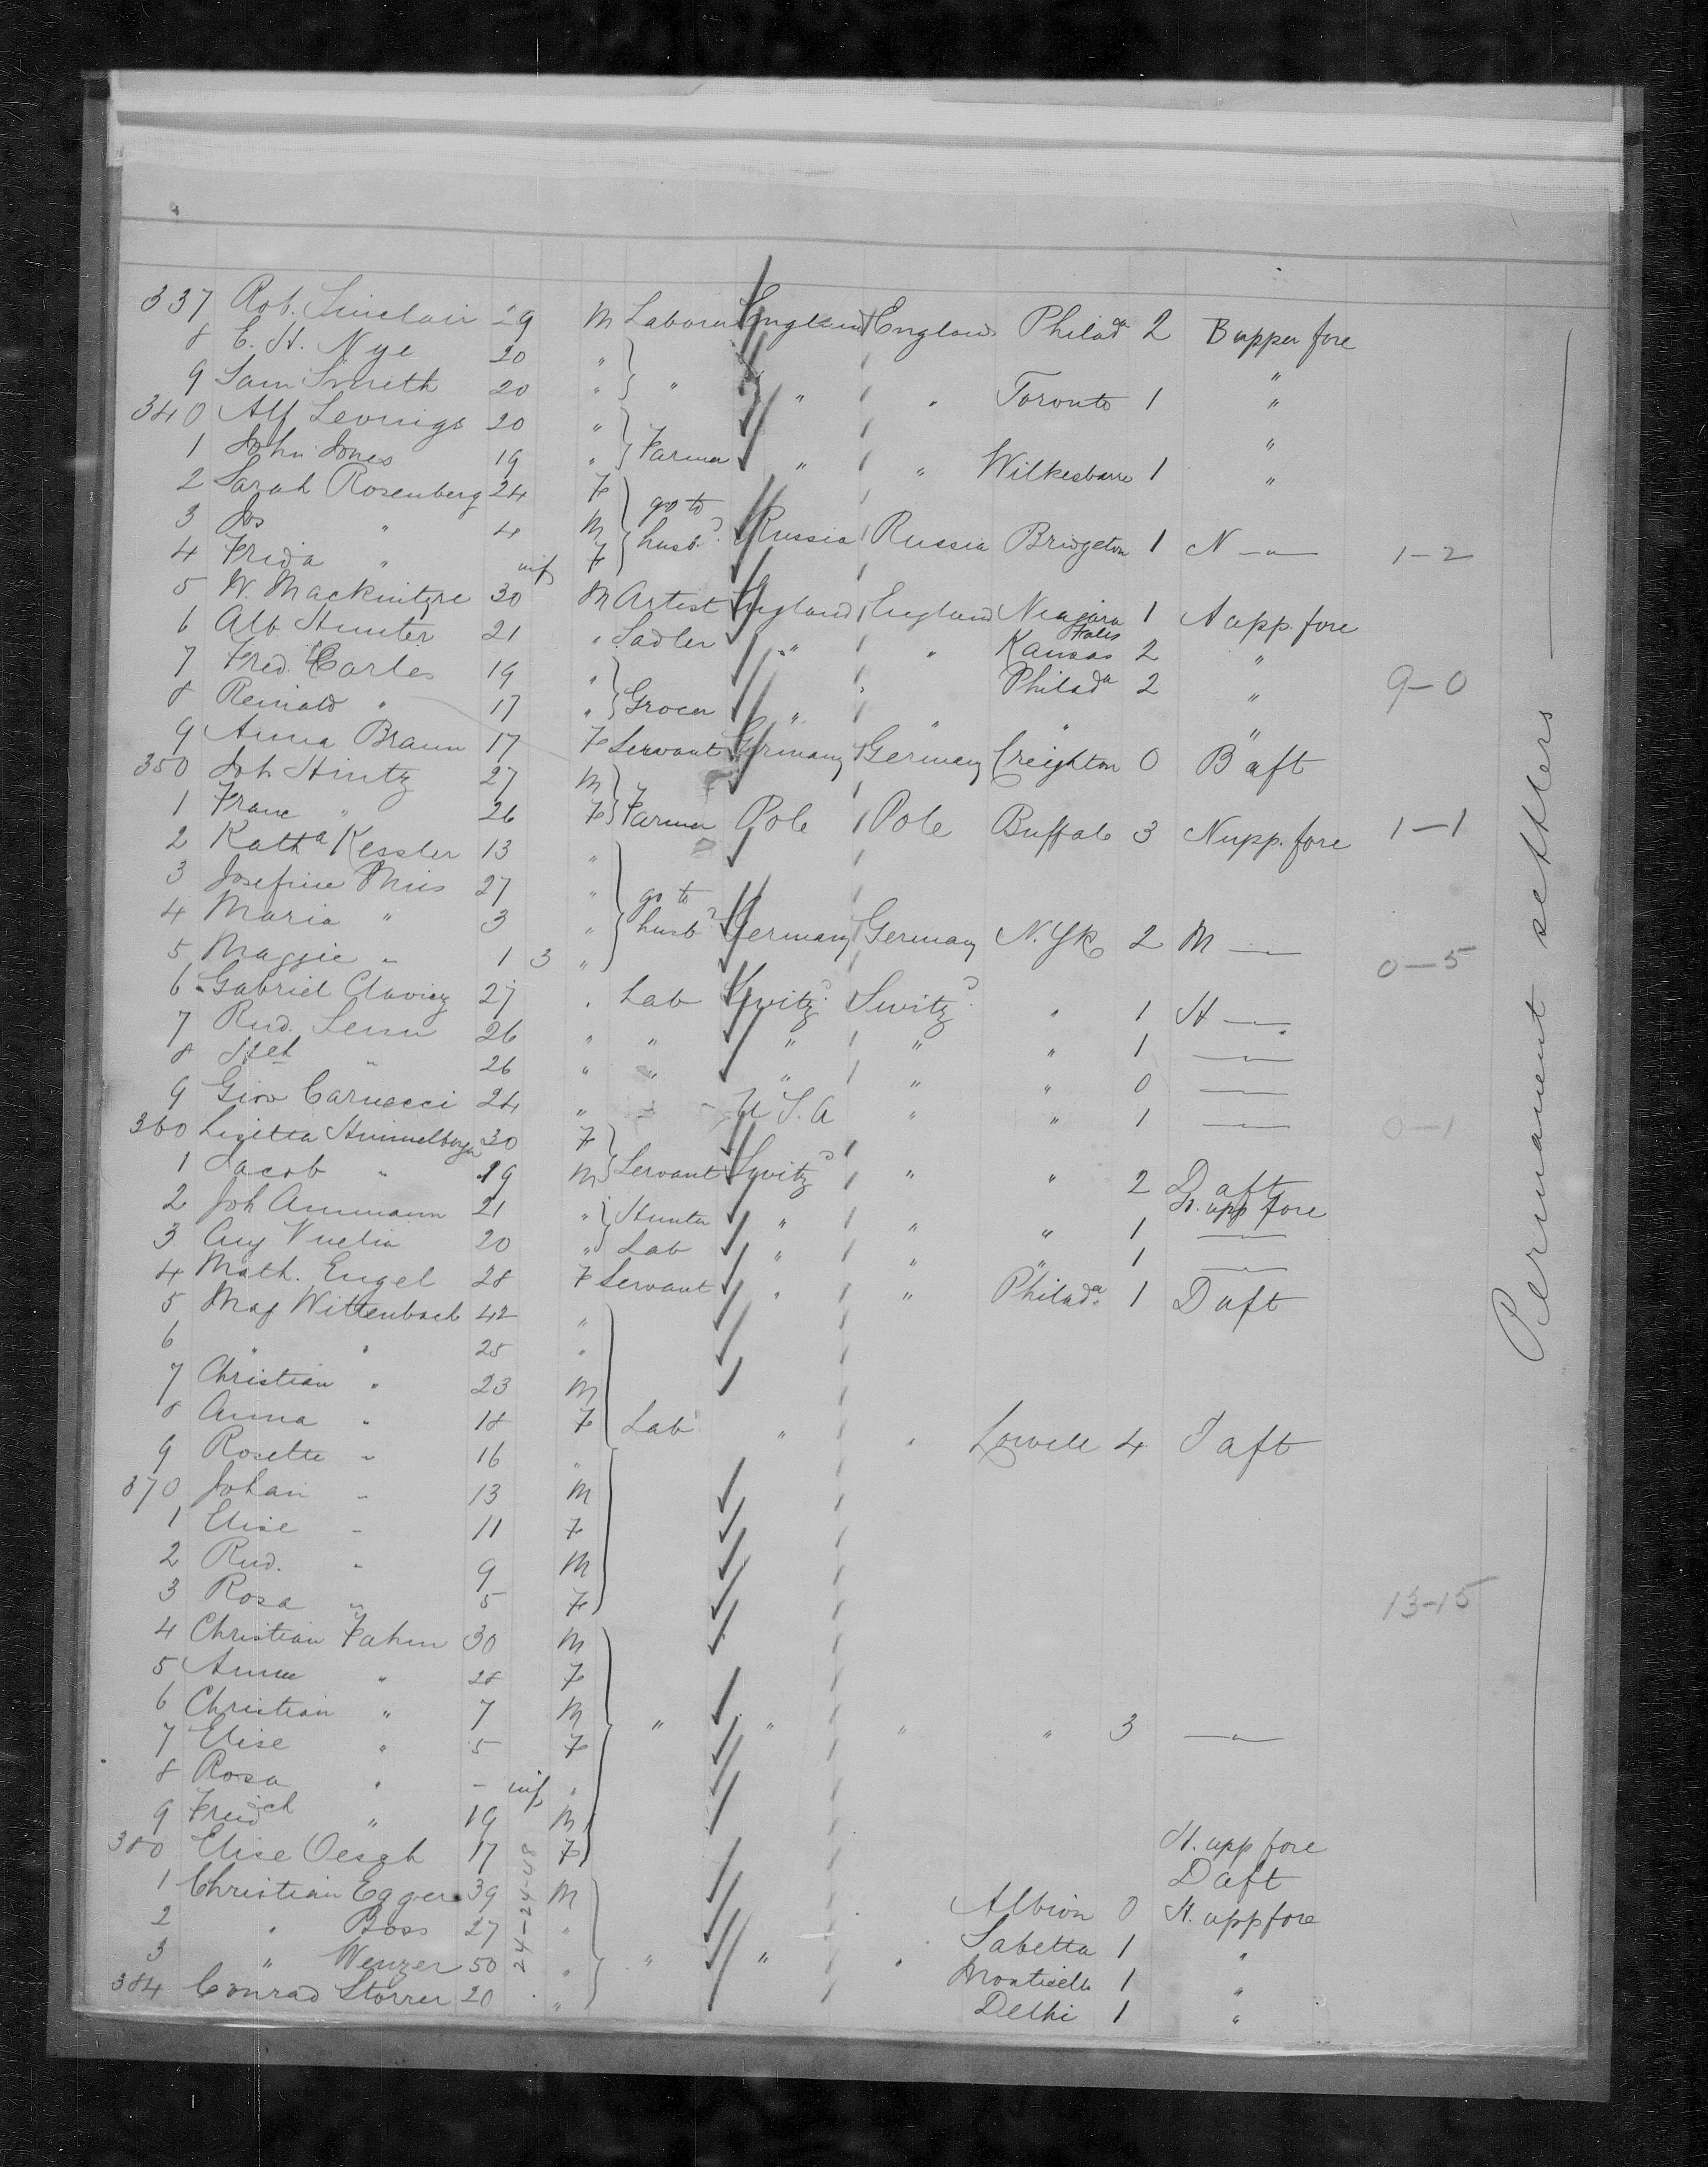 337 Rob. Sinclair 29 M Laborer England England Philada 2 B upper fore
8 E. H. Nye 20 " "
9 Sam Smith 20 " " " " Toronto 1 "
340 Alf Levings 20 " "
1 John Jones 19 " Farmer " " Wilkesbarre 1 "
2 Sarah Rosenberg 24 F
3 Jos " 4 M go to husb. Russia Russia Bridgeton 1 N —"— 1-2
4 Frida " inf F
5 W. Mackintyre 30 M Artist England England Niagara Falls 1 A app. fore
6 Alb. Hunter 21 " Sadler " " Kansas 2 "
7 Fred. Carles 19 " Philada 2 " 9-0
8 Reinald " 17 " Grocer " " " "
9 Anna Braun 17 F Servant Germany Germany Creighton 0 B aft
350 Joh Hintz 27 M
1 Franc " 26 F Farmer Pole Pole Buffalo 3 N upp. fore 1-1
2 Katha Kessler 13 "
3 Josefine 27 "
4 Maria " 3 " go to husb Germany Germany N. Yk 2 M —"—
5 Maggie " 1 3 " 0-5
6 Gabriel 27 " Lab Switz. Switz. " 1 H —"—
7 Rud. Senn 26 " " " " " 1 —"—
8 " 26 " " " " " 0 —"—
9 Giov Carnacci 24 " " U S. A " " 1 —"—
360 Lisetta 30 F 0-1
1 Jacob " 19 M Servant Switz " " 2 D aft
H. upp fore
2 Joh Ammann 21 " Hunter " " " 1 —"—
3 Aug 20 " Lab " " " 1 —"—
4 Math. Engel 28 F Servant " " Philada. 1 D aft
5 Mag Wittenbach 42 "
6 " " 25 "
7 Christian " 23 M
8 Anna " 18 F Lab " " Lowell 4 D aft
9 Rosette " 16 "
370 Johan " 13 M
1 Elise " 11 F
2 Rud. " 9 M
3 Rosa " 5 F 13-15
4 Christian Fahm 30 M
5 Anna " 28 F
6 Christian " 7 M
7 Elise " 5 F " " " " 3 —"—
8 Rosa " - inf "
9 Friedch " 19 M
H. upp fore
380 Elise Oesch 17 F D aft
1 Christian Egger 39 M Albion 0 H. upp fore
2 " Boss 27 " Sabetta 1 "
3 " Wenger 50 " " " " Monticello 1 "
384 Conrad Storrer 20 " Delhi 1 "
24-24-48
Permanent settlers